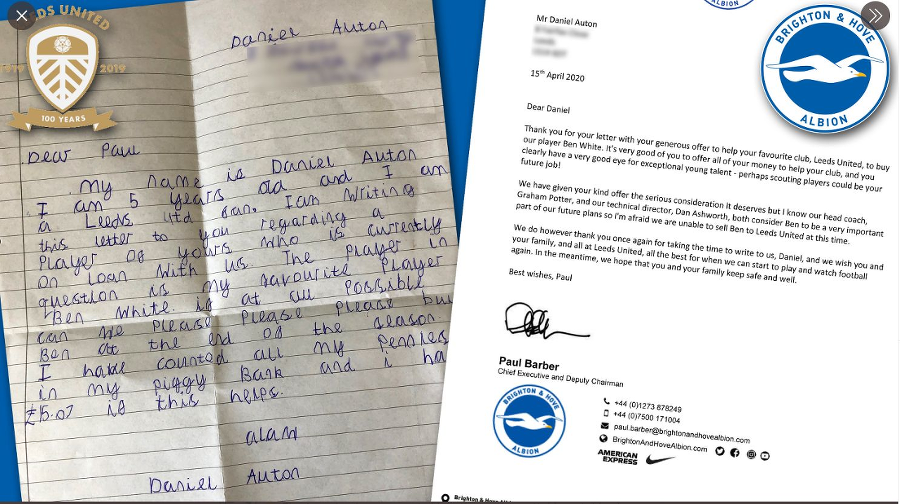 LEEDS UNITED
2019
100 YEARS
Daniel Auton
Dear Paul
My name is Daniel Auton
I am 5 years old and I am
a Leeds utd fan. I am writing
this letter to you regarding a
Player of yours who is currently
on loan with us The Player in
question is my favourite Player
Ben White. is at all Possible
can we Please Please Please buy
Ben at the end of the season.
I have counted all my Pennies
in my piggy Bank and i ha
£15.07 is this helps.
Daniel Auton
BRIGHTON & HOVE
ALBION
Mr Daniel Auton
15th April 2020
Dear Daniel
Thank you for your letter with your generous offer to help your favourite club, Leeds United, to buy
our player Ben White. It's very good of you to offer all of your money to help your club, and you
clearly have a very good eye for exceptional young talent - perhaps scouting players could be your
future job!
We have given your kind offer the serious consideration it deserves but I know our head coach,
Graham Potter, and our technical director, Dan Ashworth, both consider Ben to be a very important
part of our future plans so I'm afraid we are unable to sell Ben to Leeds United at this time.
We do however thank you once again for taking the time to write to us, Daniel, and we wish you and
your family, and all at Leeds United, all the best for when we can start to play and watch football
again. In the meantime, we hope that you and your family keep safe and well.
Best wishes, Paul
Paul Barber
Chief Executive and Deputy Chairman
BRIGHTON & HOVE
ALBION
+44 (0)1273 878249
+44 (0)7500 171004
paul.barber@brightonandhovealbion.com
BrightonAndHoveAlbion.com
AMERICAN
EXPRESS
Brighton & Hove